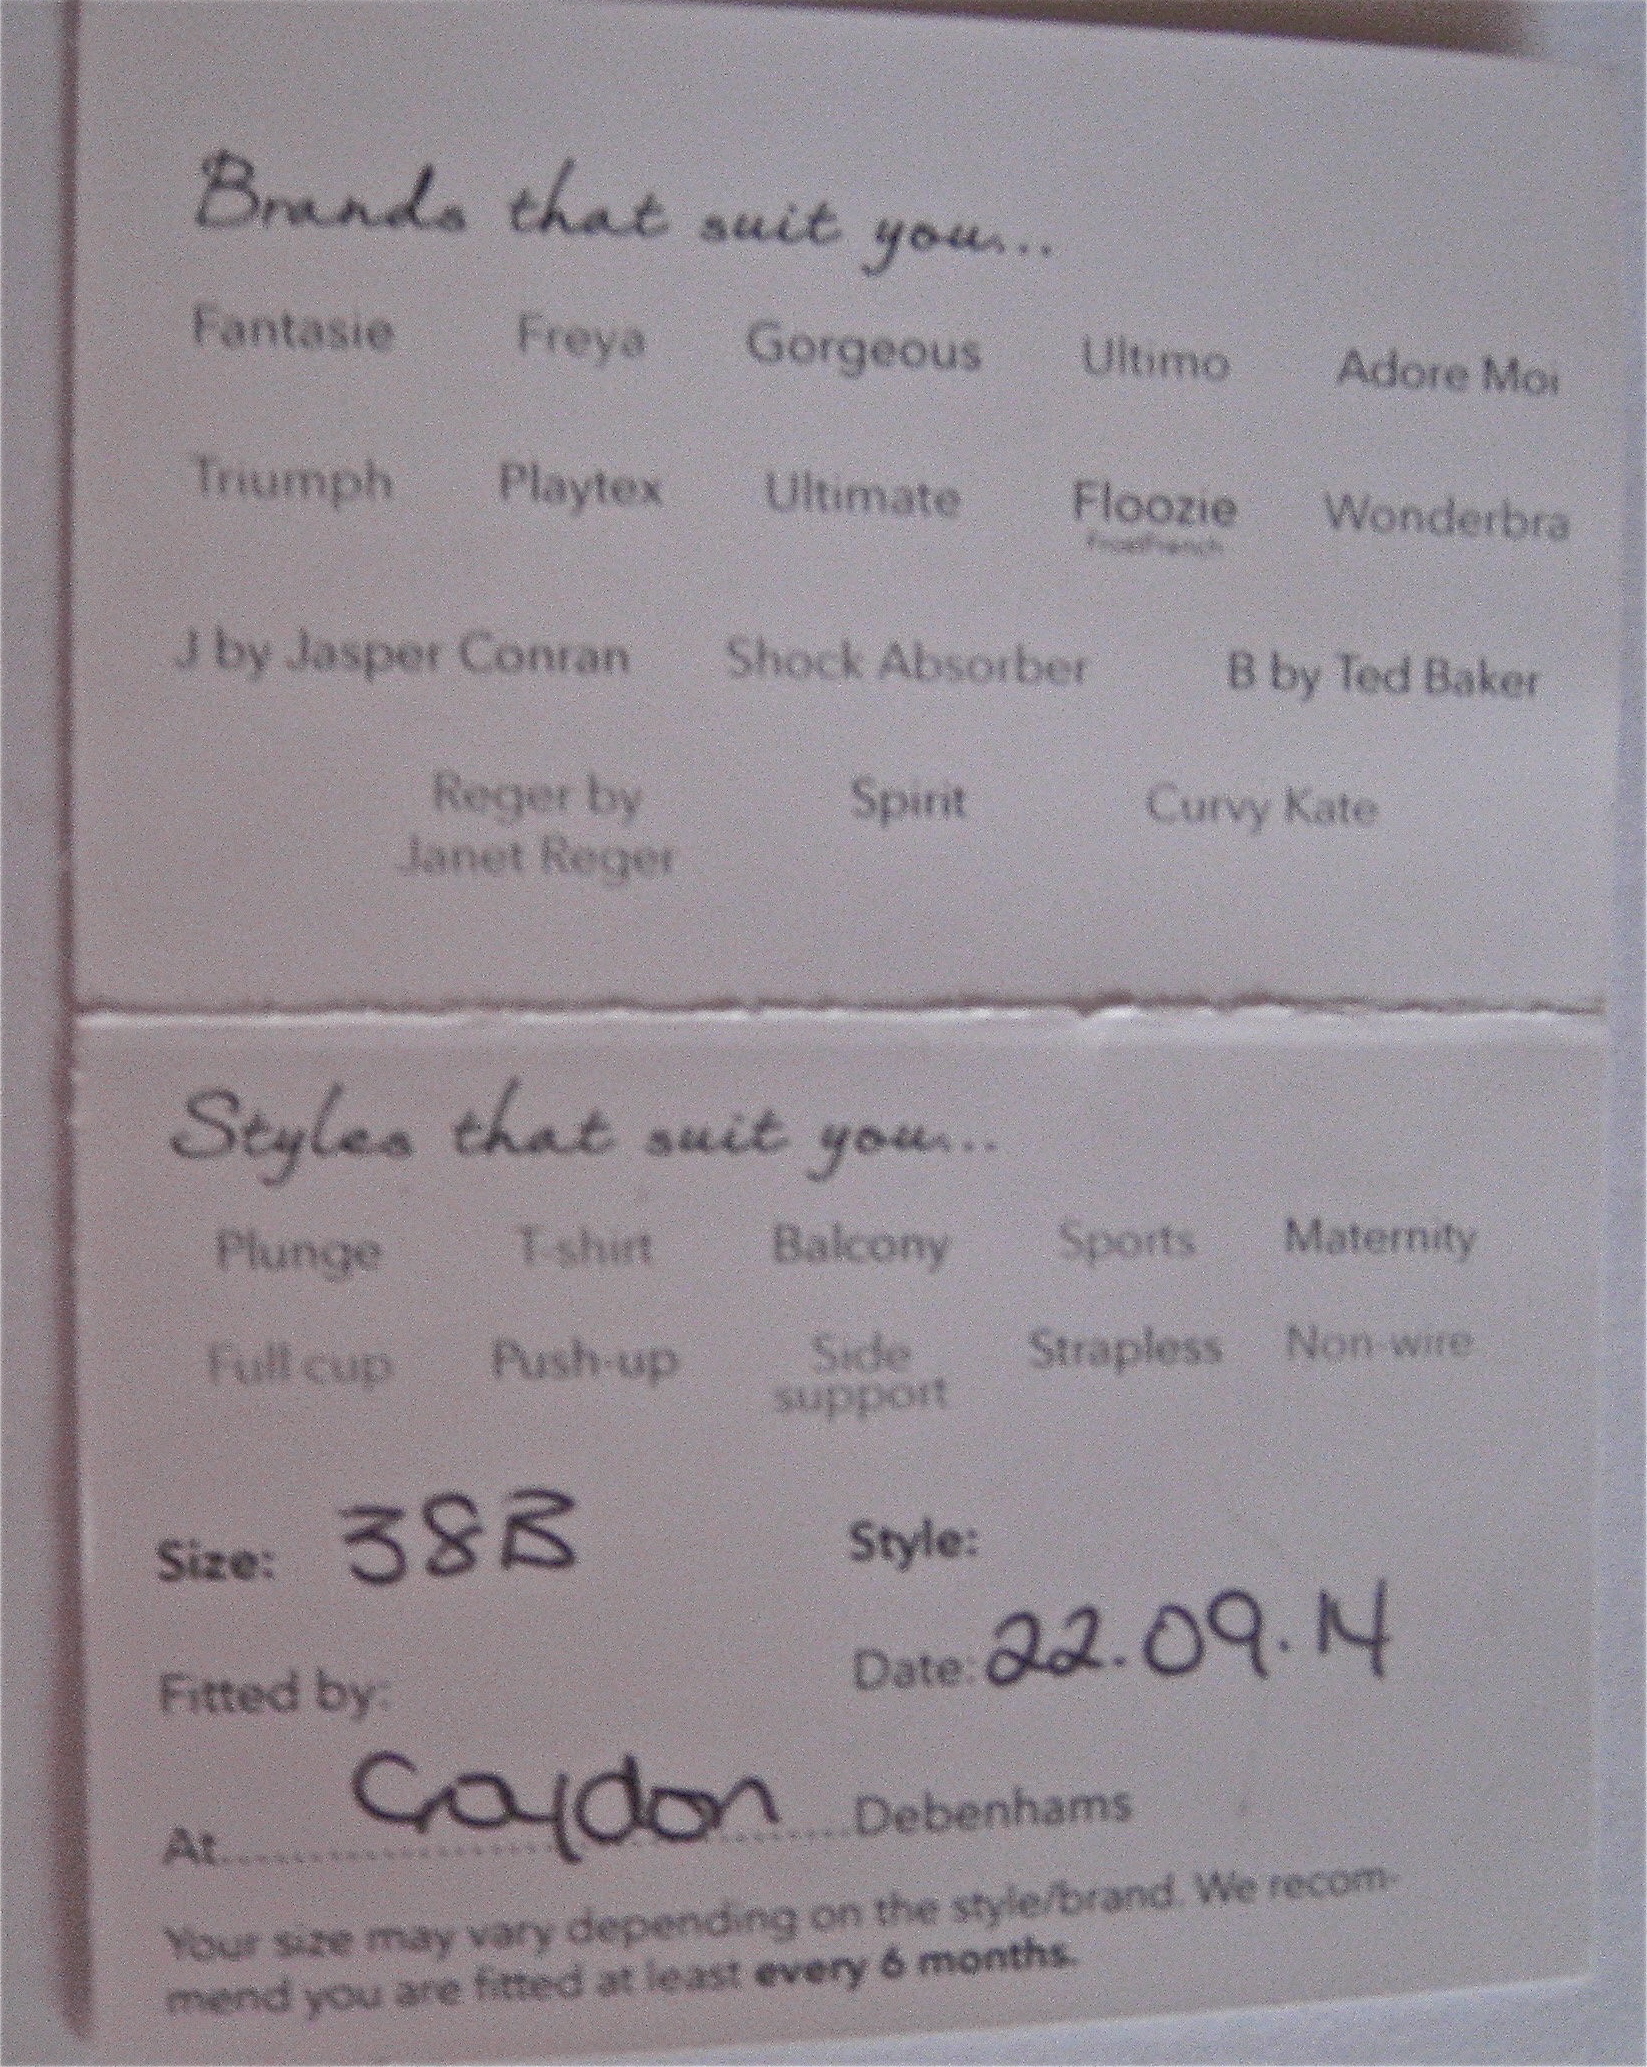 Brands that suit you...
Fantasie Freya Gorgeous Ultimo Adore Moi
Triumph Playtex Ultimate Floozie Wonderbra
FrostFrench
J by Jasper Conran Shock Absorber B by Ted Baker
Reger by Spirit Curvy Kate
Janet Reger
Styles that suit you...
Plunge T-shirt Balcony Sports Maternity
Full cup Push-up Side Strapless Non-wire
support
Size: 38B Style:
Date: 22.09.14
Fitted by:
At..........Croydon..........Debenhams
Your size may vary depending on the style/brand. We recom-
mend you are fitted at least every 6 months.